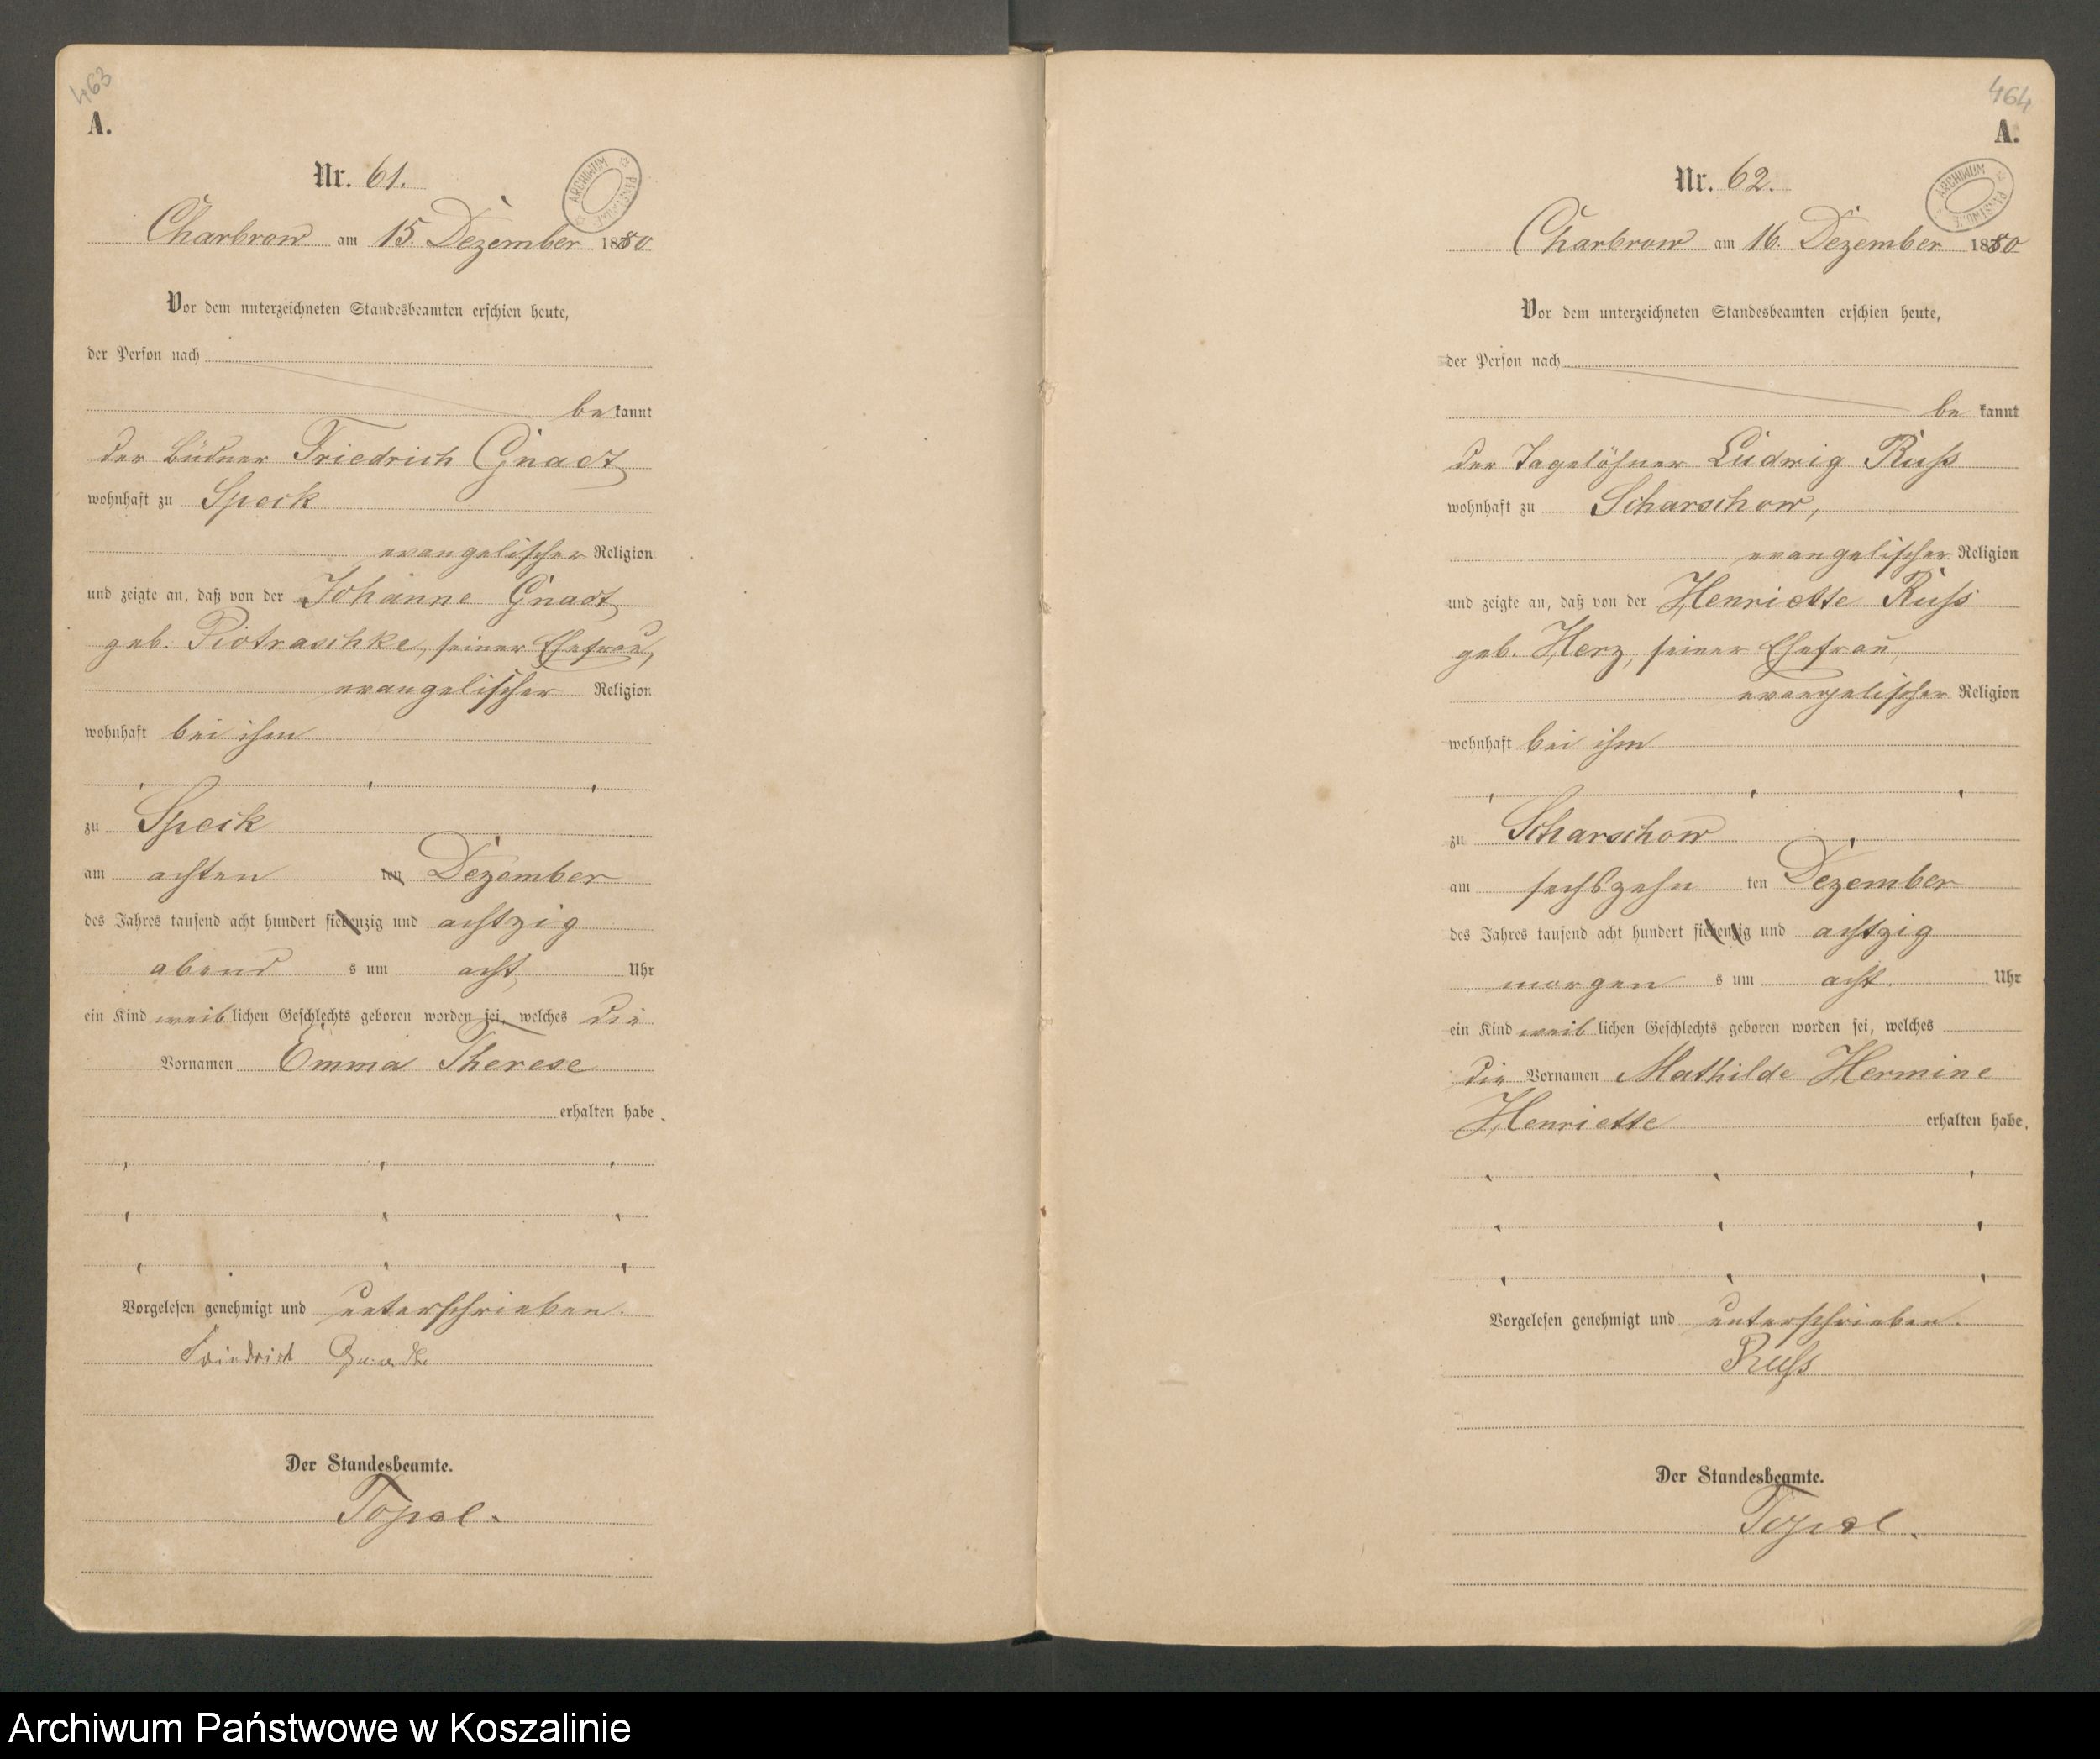 463
A.
Nr. 61.
ARCHIWUM PAŃSTWOWE
Charbrow am 15. Dezember 1880
Vor dem unterzeichneten Standesbeamten erschien heute,
der Person nach
bekannt
der Büdner Friedrich Gnadt
wohnhaft zu Speck
evangelischer Religion
und zeigte an, daß von der Johanne Gnadt
geb. Piotraschke, seiner Ehefrau,
evangelischer Religion
wohnhaft bei ihm
zu Speck
am achten ten Dezember
des Jahres tausend acht hundert siebenzig und achtzig
abend s um acht Uhr
ein Kind weiblichen Geschlechts geboren worden sei, welches die
Vornamen Emma Therese
erhalten habe.
Vorgelesen genehmigt und unterschrieben.
Friedrich Gnadt
Der Standesbeamte.
Topel.
464
A.
Nr. 62.
ARCHIWUM PAŃSTWOWE
Charbrow am 16. Dezember 1880
Vor dem unterzeichneten Standesbeamten erschien heute,
der Person nach
be kannt
der Tagelöhner Ludwig Ruß
wohnhaft zu Scharschow,
evangelischer Religion
und zeigte an, daß von der Henriette Ruß
geb. Herz, seiner Ehefrau,
evangelischer Religion
wohnhaft bei ihm
zu Scharschow
am sechszehn ten Dezember
des Jahres tausend acht hundert siebenzig und achtzig
morgen s um acht Uhr
ein Kind weib lichen Geschlechts geboren worden sei, welches
die Vornamen Mathilde Hermine
Henriette erhalten habe.
Vorgelesen genehmigt und unterschrieben.
Ruß
Der Standesbeamte.
Topel.
Archiwum Państwowe w Koszalinie